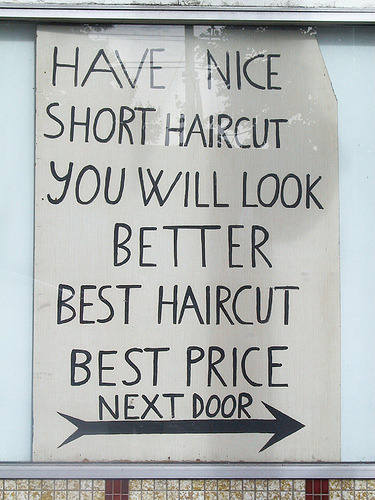 HAVE NICE
SHORT HAIRCUT
YOU WILL LOOK
BETTER
BEST HAIRCUT
BEST PRICE
NEXT DOOR